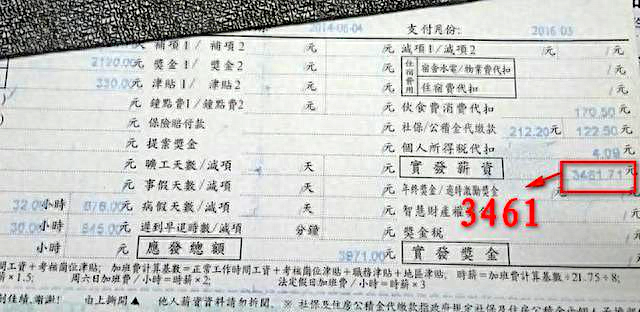 2014-06-04 支付月份: 2016-03
補項1/ 補項2 /元 減項1/減項2 /元 /元
2120.00元 獎金1/ 獎金2 /元 住宿費用 宿舍水電/物業費代扣 /元
330.00元 津貼1/ 津貼2 /元 住宿費代扣 /元
元 鐘點費1/鐘點費2 /元 伙食費消費代扣 170.50元
元 保險賠付款 元 社保/公積金代繳款 212.20元 122.50元
元 提案獎金 元 個人所得稅代扣 4.09元
元 曠工天數/減項 天 /元 實發薪資 3461.71元
元 事假天數/減項 天 /元 年終獎金/逾時激勵獎金 /元
32.00小時 676.00元 病假天數/減項 天 /元 智慧財產權 3461
30.00小時 845.00元 遲到早退時數/減項 分鐘 /元 獎金稅 元
小時 元 應發總額 3971.00元 實發獎金 元
間工資+考核崗位津貼; 加班費計算基數=正常工作時間工資+考核崗位津貼+職務津貼+地區津貼; 時薪=加班費計算基數÷21.75÷8;
薪×1.5; 周六日加班費/小時=時薪×2; 法定假日加班費/小時=時薪×3
創佳績,謝謝! 由上撕開▲ 他人薪資資料請勿拆閱. ※ 社保及住房公積金代扣